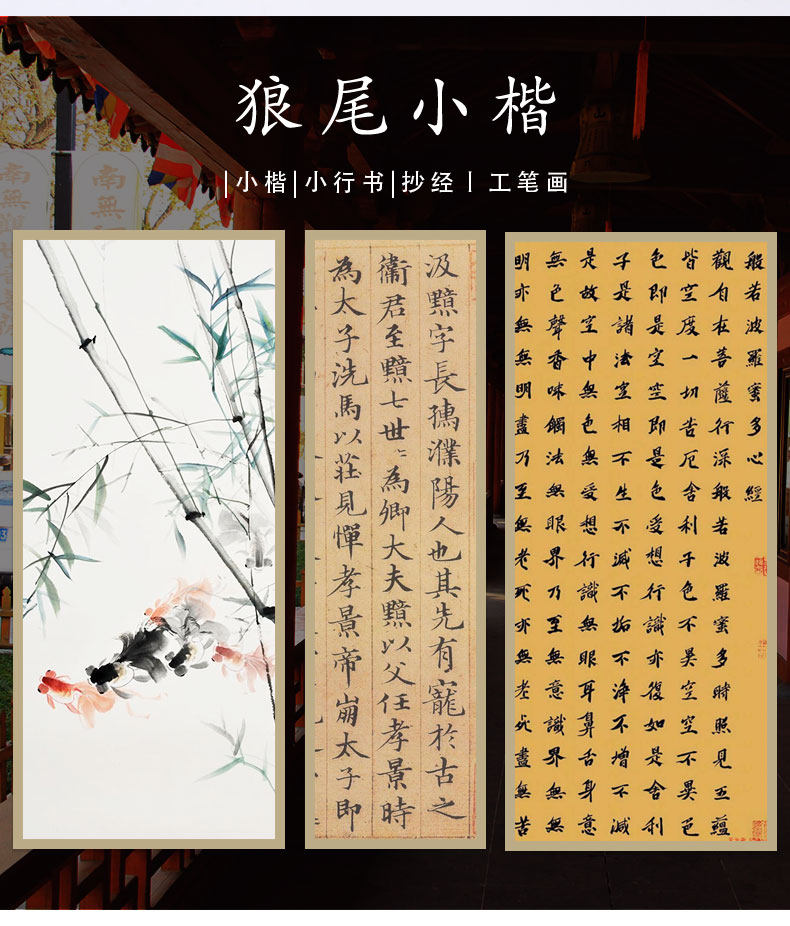 狼尾小楷
|小楷|小行书|抄经丨工笔画
南無
南無
汲黯字長孺濮陽人也其先有寵於古之
衞君至黯七世〻為卿大夫黯以父任孝景時
為太子洗馬以莊見憚孝景帝崩太子即
般若波羅蜜多心經
觀自在菩薩行深般若波羅蜜多時照見五蘊
皆空度一切苦厄舍利子色不異空空不異色
色即是空空即是色受想行識亦復如是舍利
子是諸法空相不生不滅不垢不淨不增不減
是故空中無色無受想行識無眼耳鼻舌身意
無色聲香味觸法無眼界乃至無意識界無無
明亦無無明盡乃至無老死亦無老死盡無苦